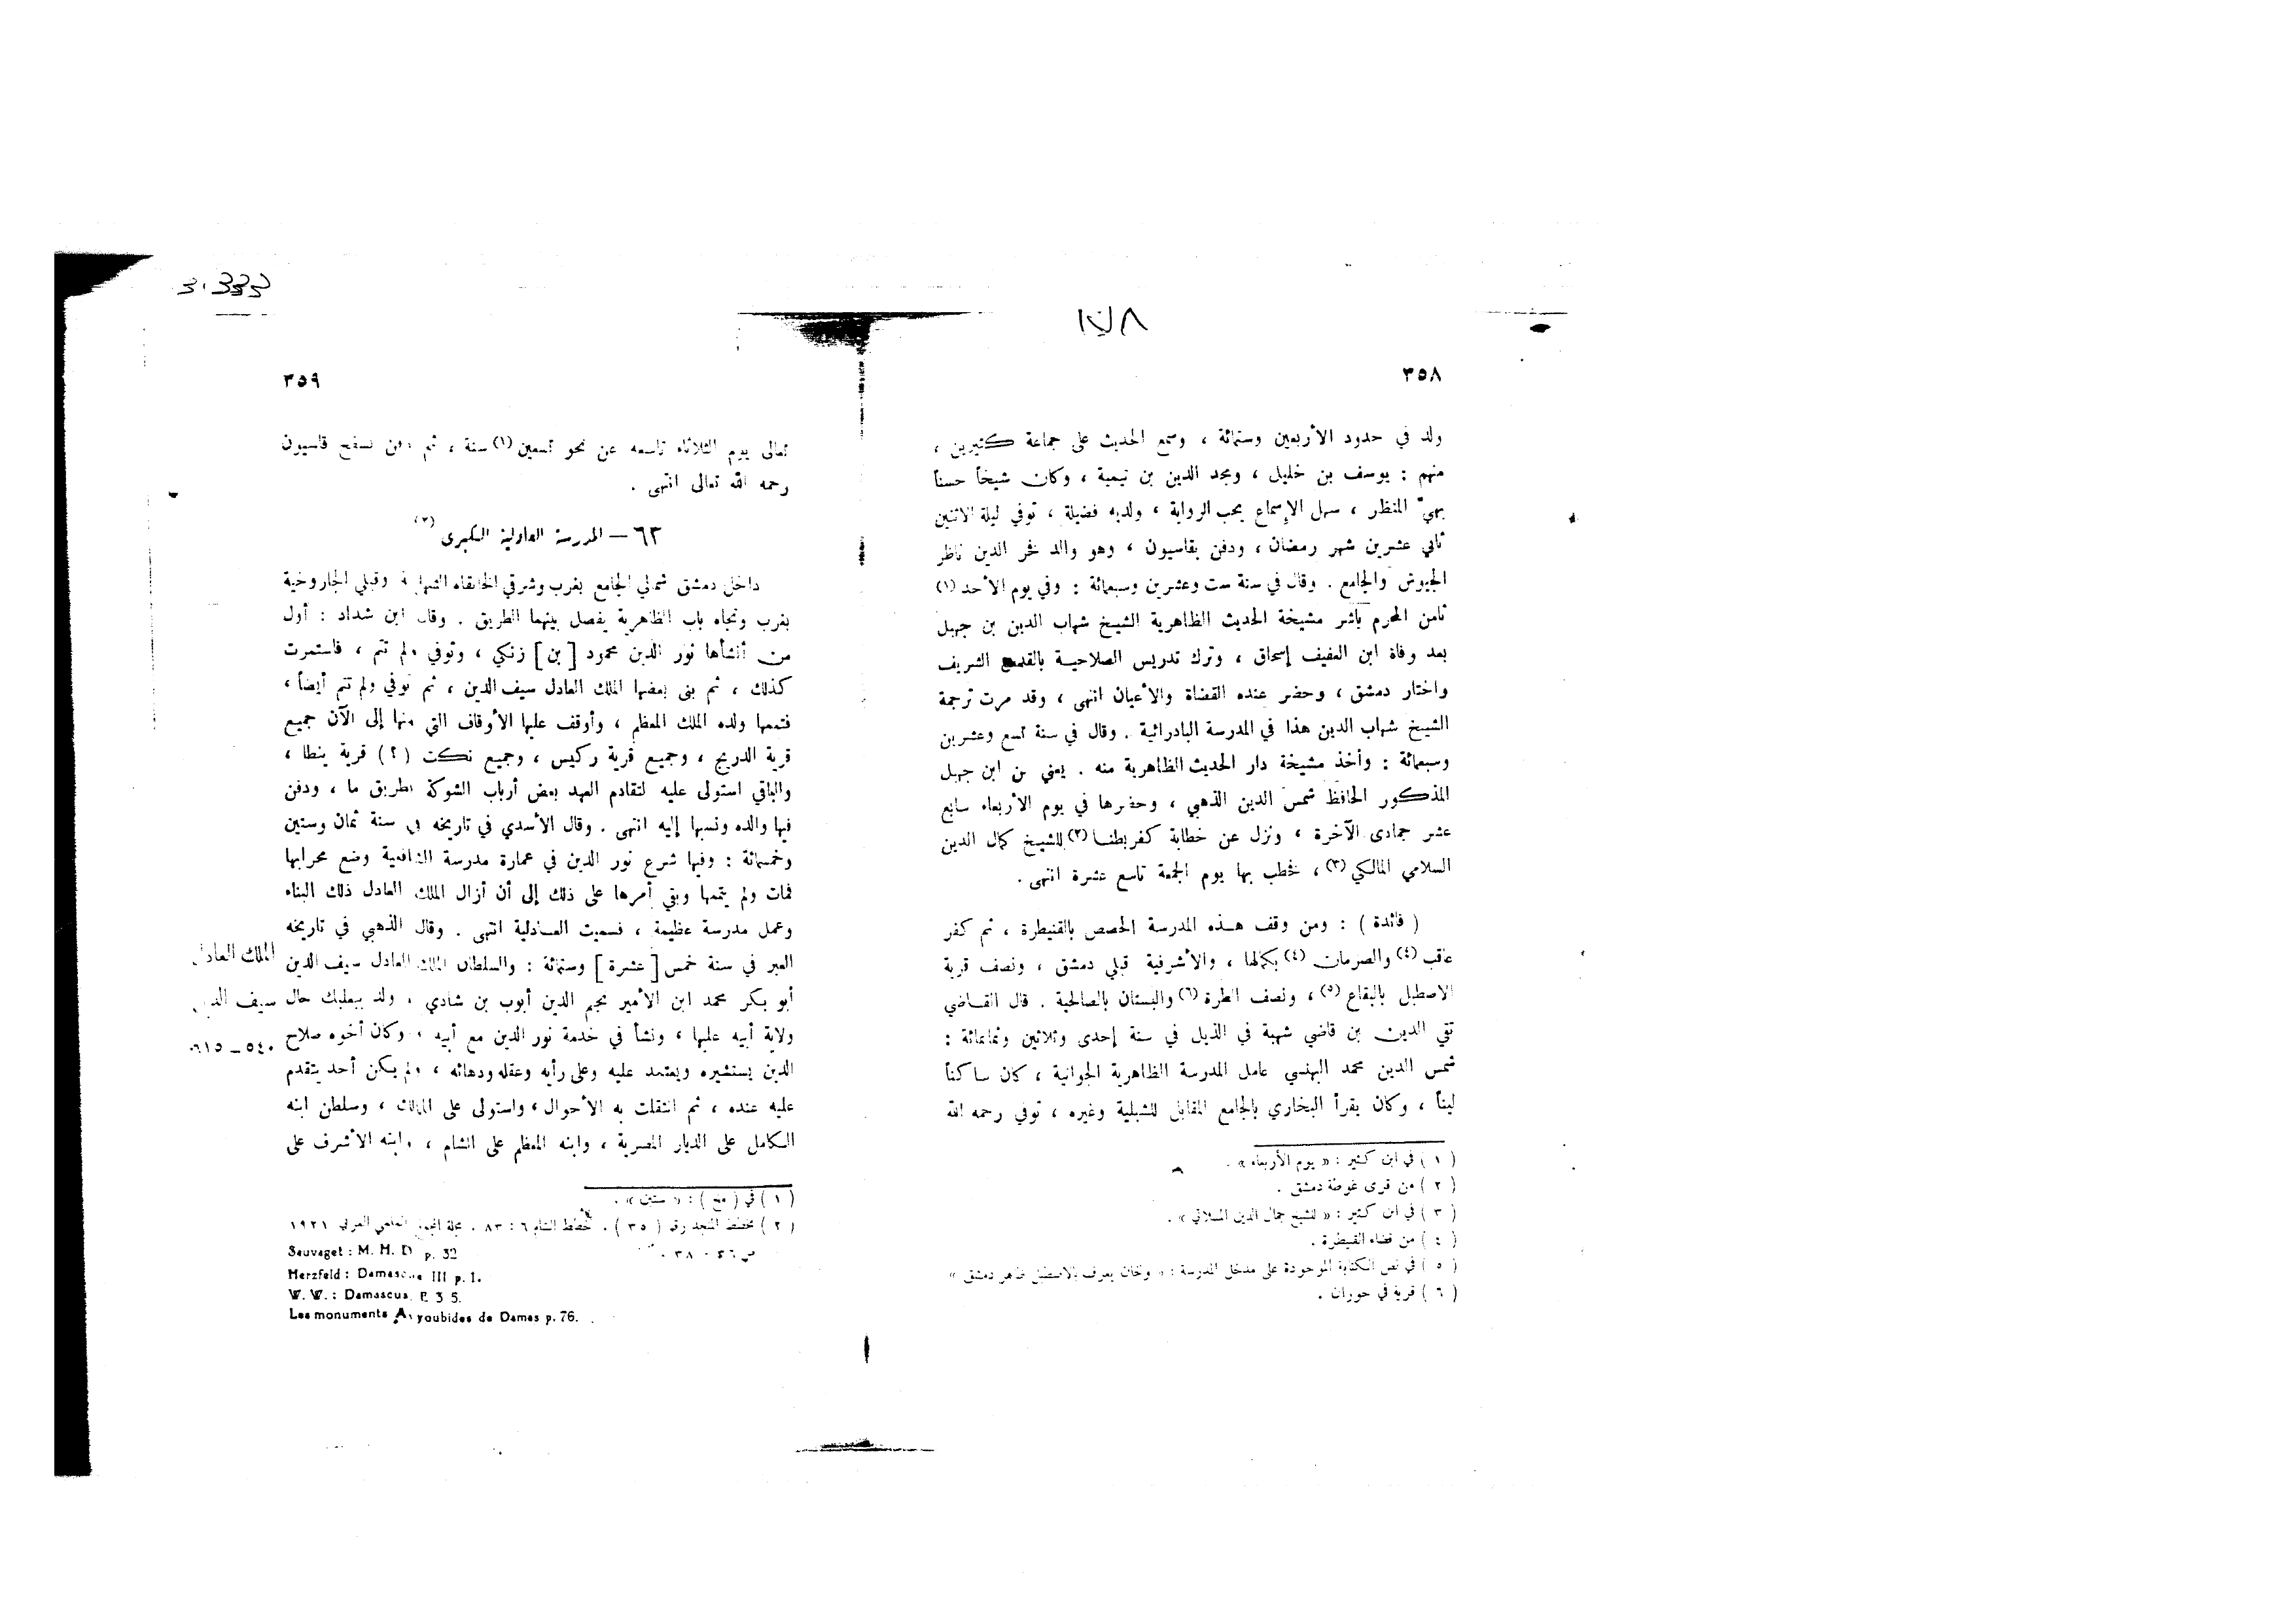 ١٧٨
٣٥٨
ولد في حدود الأربعين وستمائة ، وسمع الحديث على جماعة كثيرين ،
منهم : يوسف بن خليل ، ومجد الدين بن تيمية ، وكان شيخاً حسناً
بهيّ المنظر ، سهل الإسماع يحب الرواية ، ولديه فضيلة ، توفي ليلة الاثنين
ثاني عشرين شهر رمضان ، ودفن بقاسيون ، وهو والد فخر الدين ناظر
الجيوش والجامع . وقال في سنة ست وعشرين وسبعمائة : وفي يوم الأحد (١)
ثامن المحرم باشر مشيخة الحديث الظاهرية الشيخ شهاب الدين بن جهبل
بعد وفاة ابن العفيف إسحاق ، وترك تدريس الصلاحية بالقدس الشريف
واختار دمشق ، وحضر عنده القضاة والأعيان انتهى ، وقد مرت ترجمة
الشيخ شهاب الدين هذا في المدرسة البادرائية . وقال في سنة تسع وعشرين
وسبعمائة : وأخذ مشيخة دار الحديث الظاهرية منه . يعني من ابن جهبل
المذكور الحافظ شمس الدين الذهبي ، وحضرها في يوم الأربعاء سابع
عشر جمادى الآخرة ، ونزل عن خطابة كفربطنا (٢) للشيخ كمال الدين
السلامي المالكي (٣) ، فخطب بها يوم الجمعة تاسع عشرة انتهى .
( فائدة ) : ومن وقف هذه المدرسة الحصص بالقنيطرة ، ثم كفر
عاقب (٤) والصرمان (٤) بكمالها ، والأشرفية قبلي دمشق ، ونصف قرية
الاصطبل بالبقاع (٥) ، ونصف الطرة (٦) والبستان بالصالحية . قال القاضي
تقي الدين بن قاضي شهبة في الذيل في سنة إحدى وثلاثين وثمانمائة :
شمس الدين محمد البهنسي عامل المدرسة الظاهرية الجوانية ، كان ساكناً
ليناً ، وكان يقرأ البخاري بالجامع المقابل للشبلية وغيره ، توفي رحمه الله
( ١ ) في ابن كثير : « يوم الأربعاء » .
( ٢ ) من قرى غوطة دمشق .
( ٣ ) في ابن كثير : « للشيخ جمال الدين المسلاتي » .
( ٤ ) من قضاء القنيطرة .
( ٥ ) في نص الكتابة الموجودة على مدخل المدرسة : « وخان يعرف بالاصطبل ظاهر دمشق »
( ٦ ) قرية في حوران .
٣٥٩
تعالى يوم الثلاثاء تاسعه عن نحو تسعين (١) سنة ، ثم دفن بسفح قاسيون
رحمه الله تعالى انتهى .
٦٣ – المدرسة العادلية الكبرى (٢)
داخل دمشق شمالي الجامع بغرب وشرقي الخانقاه الشهابية وقبلي الجاروخية
بغرب وتجاه باب الظاهرية يفصل بينهما الطريق . وقال ابن شداد : أول
من أنشأها نور الدين محمود [ بن ] زنكي ، وتوفي ولم تتم ، فاستمرت
كذلك ، ثم بنى بعضها الملك العادل سيف الدين ، ثم توفي ولم تتم أيضاً ،
فتممها ولده الملك المعظم ، وأوقف عليها الأوقاف التي منها إلى الآن جميع
قرية الدريج ، وجميع قرية ركيس ، وجميع نكت ( ؟ ) قرية ينطا ،
والباقي استولى عليه لتقادم العهد بعض أرباب الشوكة بطريق ما ، ودفن
فيها والده ونسبها إليه انتهى . وقال الأسدي في تاريخه في سنة ثمان وستين
وخمسمائة : وفيها شرع نور الدين في عمارة مدرسة الشافعية وضع محرابها
فمات ولم يتمها وبقي أمرها على ذلك إلى أن أزال الملك العادل ذلك البناء
وعمل مدرسة عظيمة ، فسميت العادلية انتهى . وقال الذهبي في تاريخه
العبر في سنة خمس [ عشرة ] وستمائة : والسلطان الملك العادل سيف الدين
أبو بكر محمد ابن الأمير نجم الدين أيوب بن شادي ، ولد ببعلبك حال
ولاية أبيه عليها ، ونشأ في خدمة نور الدين مع أبيه ، وكان أخوه صلاح
الدين يستشيره ويعتمد عليه وعلى رأيه وعقله ودهائه ، ولم يكن أحد يتقدم
عليه عنده ، ثم انتقلت به الأحوال ، واستولى على الممالك ، وسلطن ابنه
الكامل على الديار المصرية ، وابنه المعظم على الشام ، وابنه الأشرف على
الملك العادل
سيف الدين
٥٤٠ – ٦١٥
( ١ ) في ( مخ ) : « ستين » .
( ٢ ) مخطط المنجد رقم ( ٣٥ ) . خطط الشام ٦ : ٨٣ . مجلة المجمع العلمي العربي ١٩٢١
Sauvaget : M. H. D p. 32
Herzfeld : Damascus III p. 1.
W. W. : Damascus. P. 3 5.
Les monuments Ayyoubides de Damas p. 76.